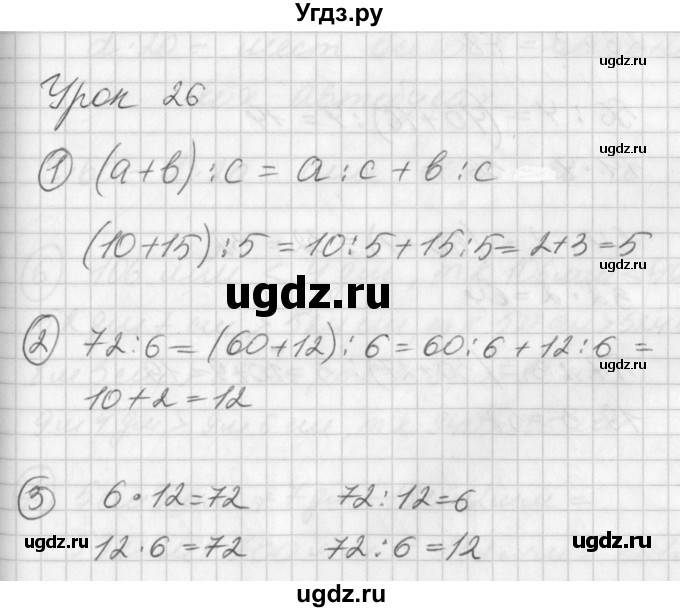 Угдз.ру
ugdz.ru
Урок 26
ugdz.ru
① (a+b):c = a:c + b:c
(10+15):5 = 10:5+15:5= 2+3=5
ugdz.ru
ugdz.ru
② 72:6=(60+12):6=60:6+12:6=
ugdz.ru
10+2=12
③ 6·12=72 72:12=6
ugdz.ru
12·6=72 72:6=12
ugdz.ru ugdz.ru
ugdz.ru